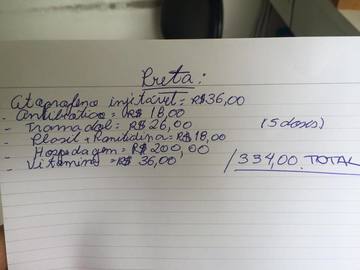 Preta:
Cetaprofeno injitável = R$36,00
- Antibiótico = R$ 18,00
- Tramadol = R$26,00 (5 doses)
- Plasil + Ranitidina = R$18,00
- Hospedagem = R$200,00
- Vitamina = R$ 36,00 / 334,00. TOTAL